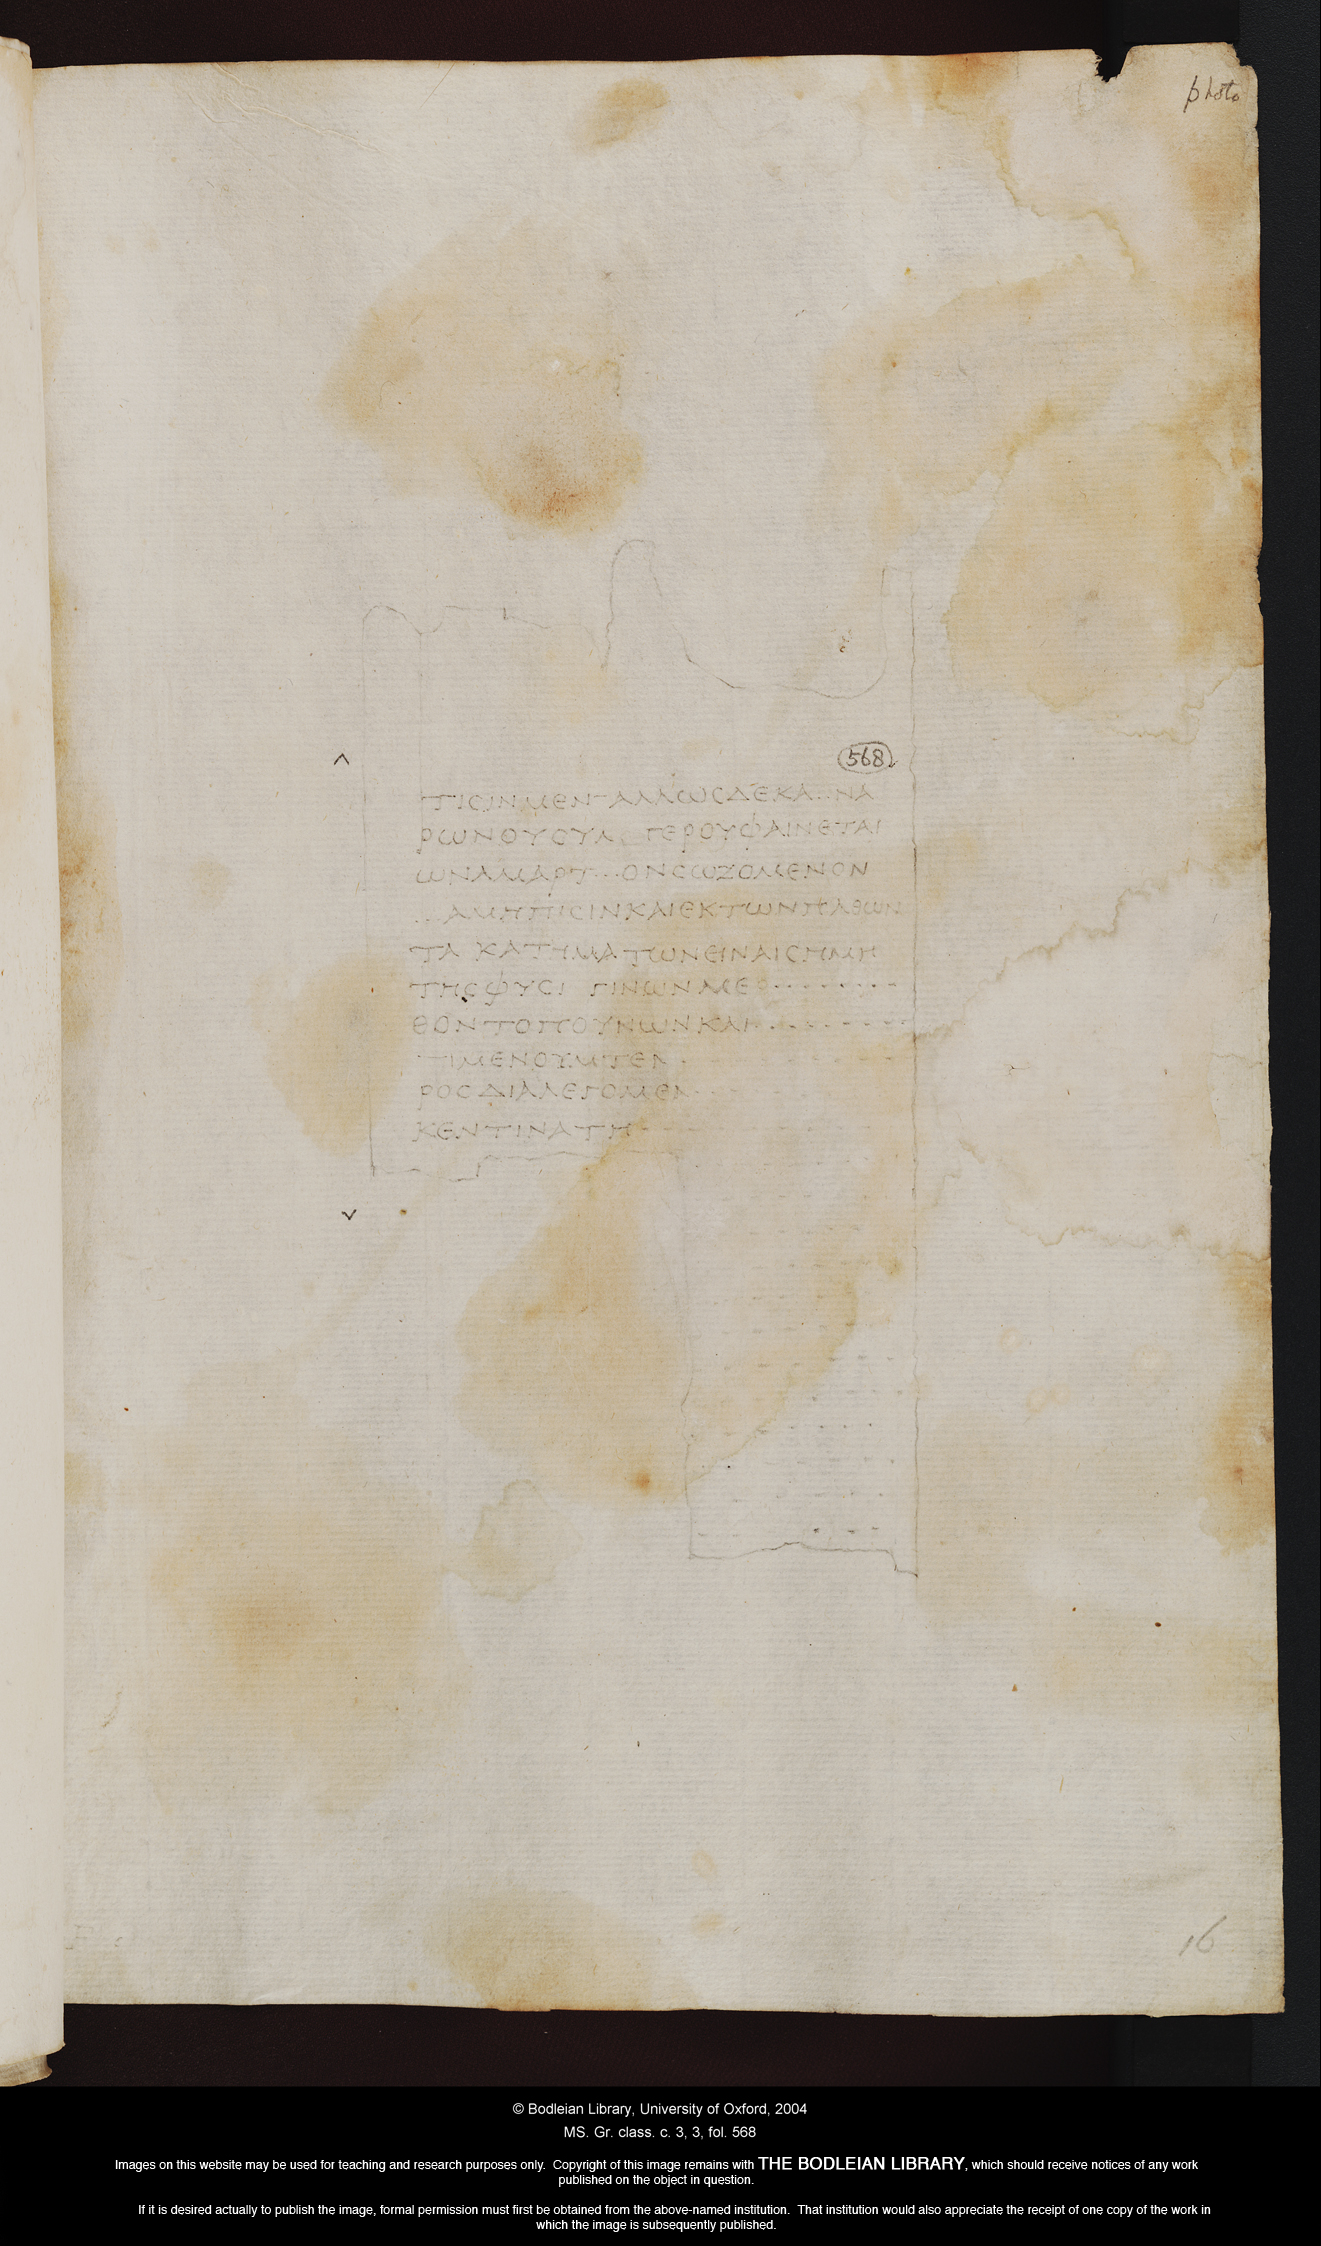 photo
568
ΤΙCΙΝΜΕΝ ΑΛΛΩCΔΕΚΑ..ΝΑ
ΡΩΝΘΥCΥΛ ΓΕΡΟΥΦΑΙΝΕΤΑΙ
ΩΝΑΜΑΡΤ...ΟΝCΩΖΟΜΕΝΟΝ
...ΑΜΗΠΙCΙΝΚΑΙΕΚΤΩΝΠΑΘΩΝ
ΤΑ ΚΑΤΗΜΑΤΩΝΕΙΝΑΙCΗΜΗ
ΤΗCΦΥCΙ ΓΙΝΩΝΜΕ
ΘΟΝΤΟΠΟΥΝΩΝΚΑΙ
ΤΙΜΕΝΟΥΜΓΕΝ
ΡΟCΔΙΑΛΕΓΟΜΕΝ
ΚΕΝΤΙΝΑΤΗ
16
© Bodleian Library, University of Oxford, 2004
MS. Gr. class. c. 3, 3, fol. 568
Images on this website may be used for teaching and research purposes only. Copyright of this image remains with THE BODLEIAN LIBRARY, which should receive notices of any work
published on the object in question.
If it is desired actually to publish the image, formal permission must first be obtained from the above-named institution. That institution would also appreciate the receipt of one copy of the work in
which the image is subsequently published.